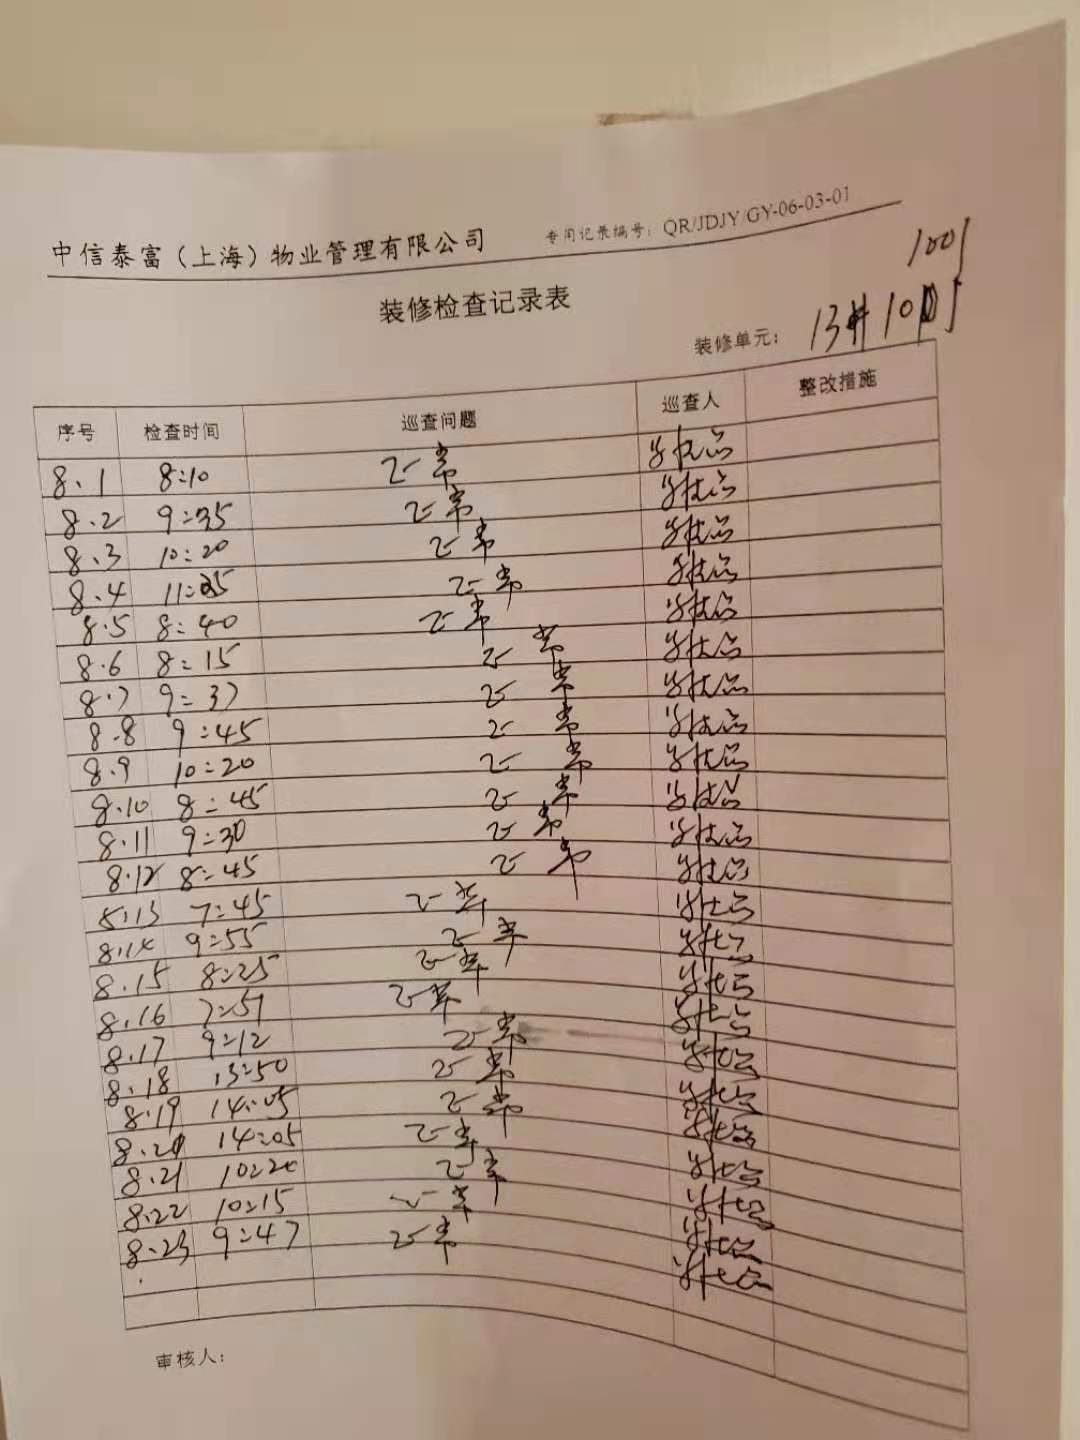 中信泰富（上海）物业管理有限公司 专用记录编号：QR/JDJY/GY-06-03-01
装修检查记录表
1001
装修单元：13# 1001
序号 检查时间 巡查问题 巡查人 整改措施
8.1 8:10 正常
8.2 9:35 正常
8.3 10:20 正常
8.4 11:35 正常
8.5 8:40 正常
8.6 8:15 正常
8.7 9:37 正常
8.8 9:45 正常
8.9 10:20 正常
8.10 8:45 正常
8.11 9:30 正常
8.12 8:45 正常
8.13 7:45 正常
8.14 9:55 正常
8.15 8:25 正常
8.16 7:51 正常
8.17 9:12 正常
8.18 13:50 正常
8.19 14:05 正常
8.20 14:05 正常
8.21 10:20 正常
8.22 10:15 正常
8.23 9:47 正常
审核人：